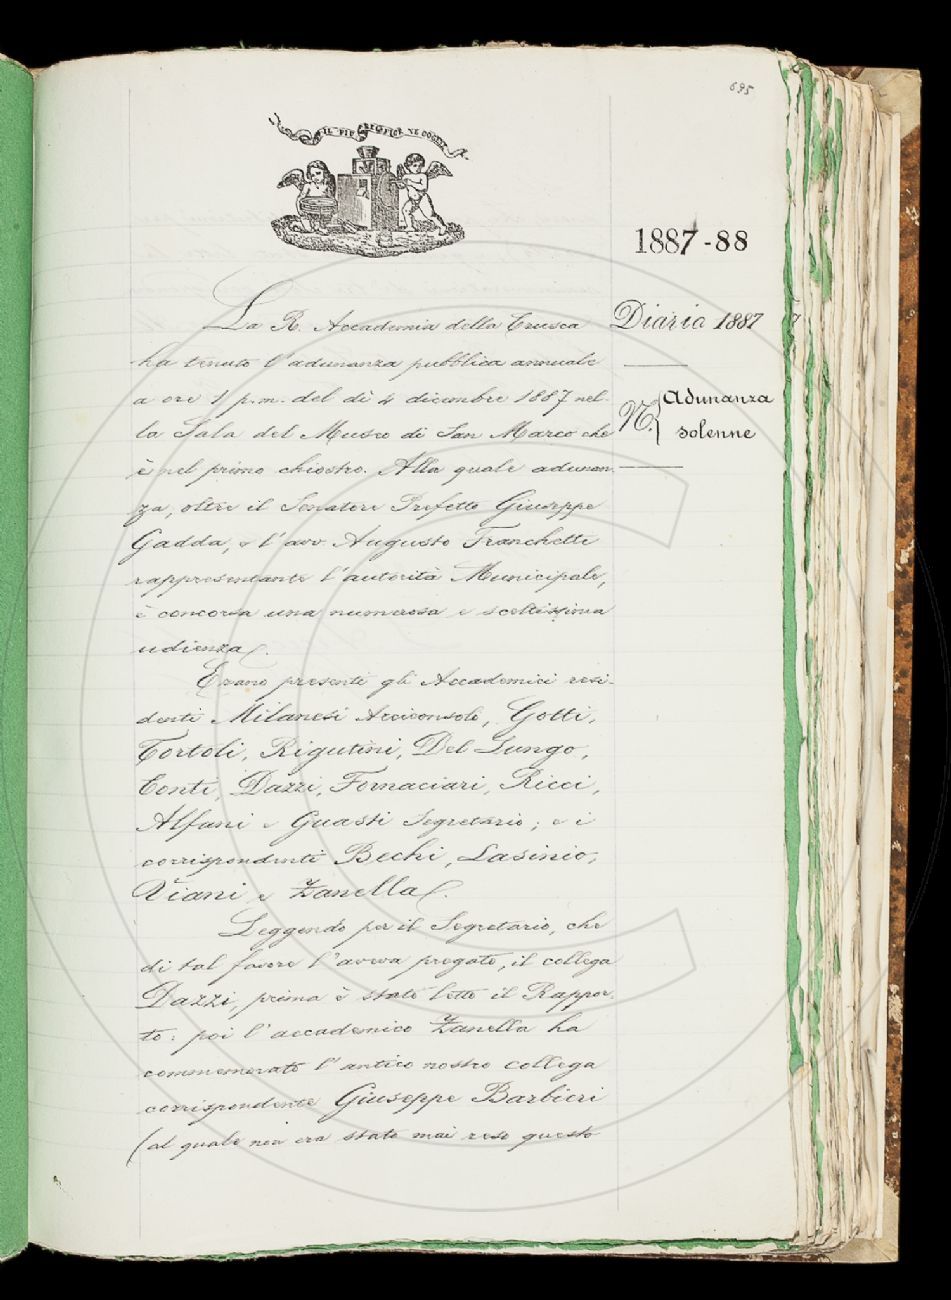 695
IL PIÙ BEL FIOR NE COGLIE
1887-88
Diario 1887
N. Adunanza
solenne
La R. Accademia della Crusca
ha tenuto l'adunanza pubblica annuale
a ore 1 p.m. del dì 4 dicembre 1887 nel-
la Sala del Museo di San Marco che
è nel primo chiostro. Alla quale adunan-
za, oltre il Senatore Prefetto Giuseppe
Gadda, e l'avv. Augusto Franchetti
rappresentante l'autorità Municipale,
è concorsa una numerosa e sceltissima
udienza.
Erano presenti gli Accademici resi-
denti Milanesi Arciconsolo, Gotti,
Tortoli, Rigutini, Del Lungo,
Conti, Dazzi, Fornaciari, Ricci,
Alfani e Guasti Segretario; e i
corrispondenti Bechi, Lasinio,
Viani e Zanella.
Leggendo per il Segretario, che
di tal favore l'aveva pregato, il collega
Dazzi, prima è stato letto il Rappor-
to: poi l'accademico Zanella ha
commemorato l'antico nostro collega
corrispondente Giuseppe Barbieri
(al quale non era stato mai reso questo